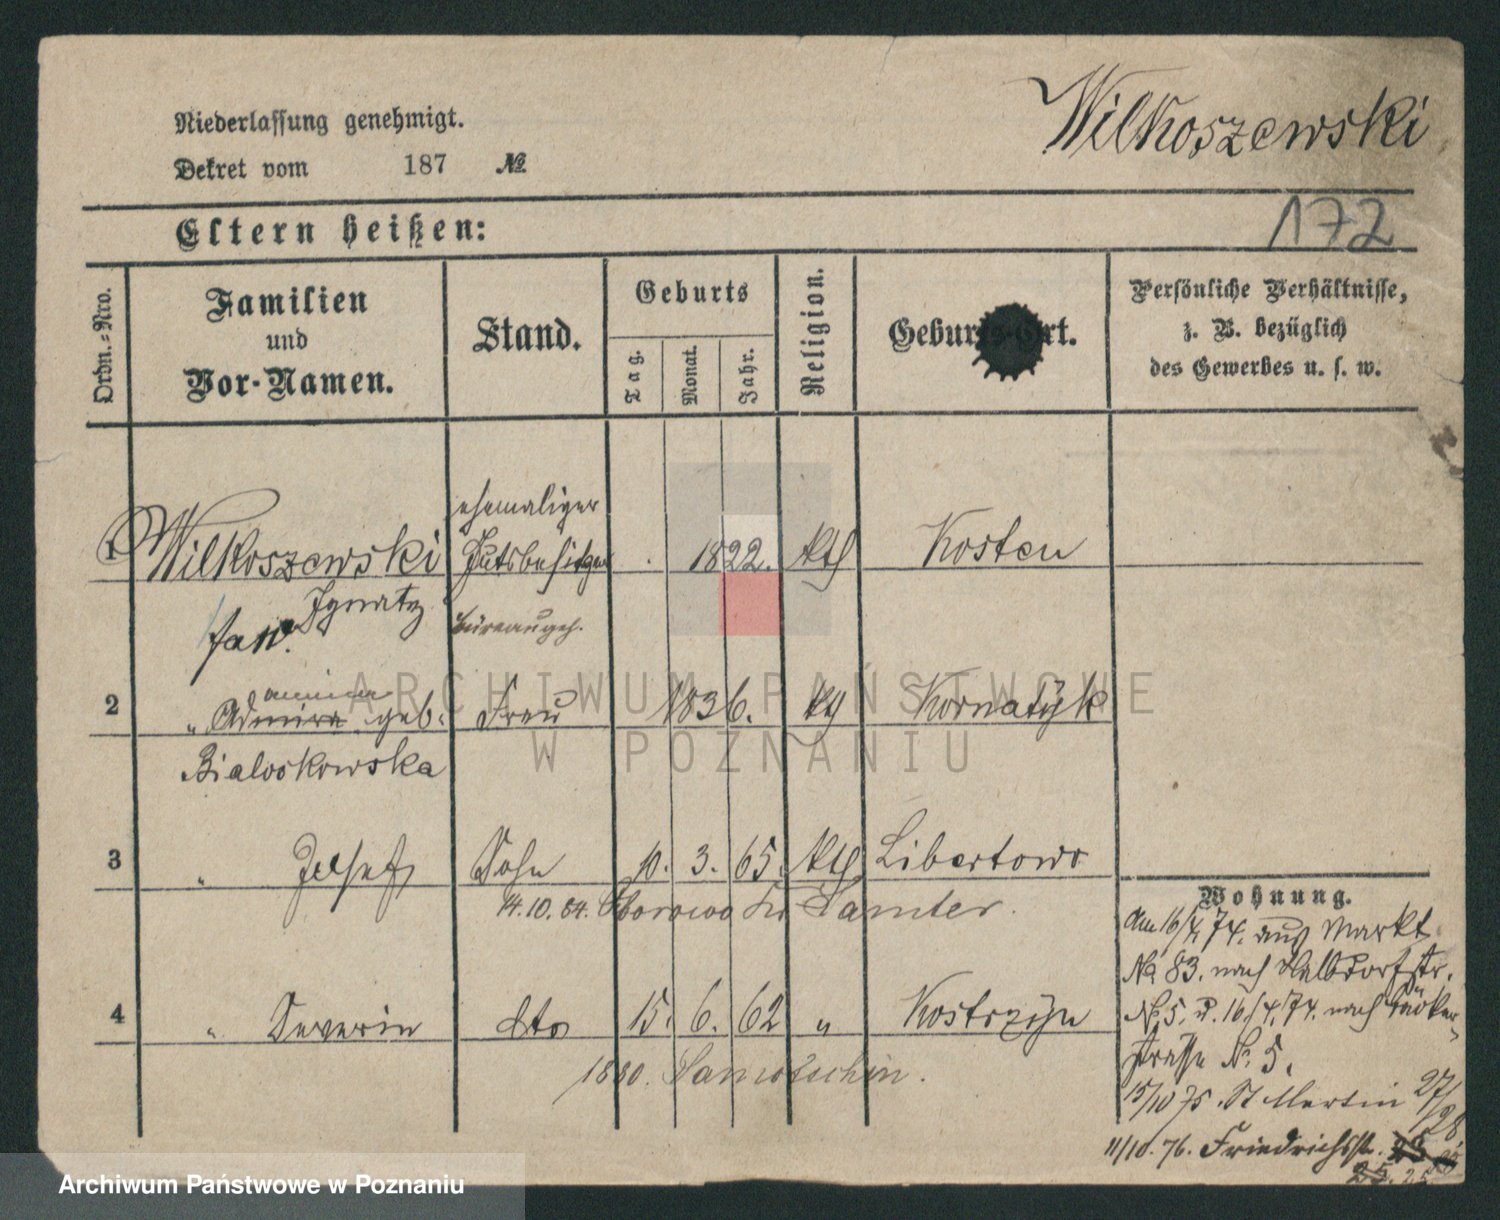 Wilkoszewski
Niederlassung genehmigt.
Dekret vom 187 №
172
Eltern heißen:
Ordn.-Nro.
Familien
und
Vor-Namen.
Stand.
Geburts
Tag.
Monat.
Jahr.
Religion.
Geburts-Ort.
Persönliche Verhältnisse,
z. B. bezüglich
des Gewerbes u. s. w.
ehemaliger
1 Wilkoszewski Gutsbesitzer 1822. kth Kosten
Ignatz
Büreaugeh.
2 " geb. Frau 1836. kth Kornatyk
Bialoskowska
3 " Josef Sohn 10. 3. 65. kth Libertowo
14.10.84. Kr Samter.
4 " Severin dto 15. 6. 62 " Kostrzyn
1880. Samotschin.
Wohnung.
Am 16/4 74. aus Markt
No 83. nach Halbdorfstr.
No 5. u. 16/4. 74. nach Bäcker-
strasse No. 5.
15/10 75. St Martin 27/28
11/10. 76. Friedrichsstr.
25. 25
ARCHIWUM PAŃSTWOWE
W POZNANIU
Archiwum Państwowe w Poznaniu